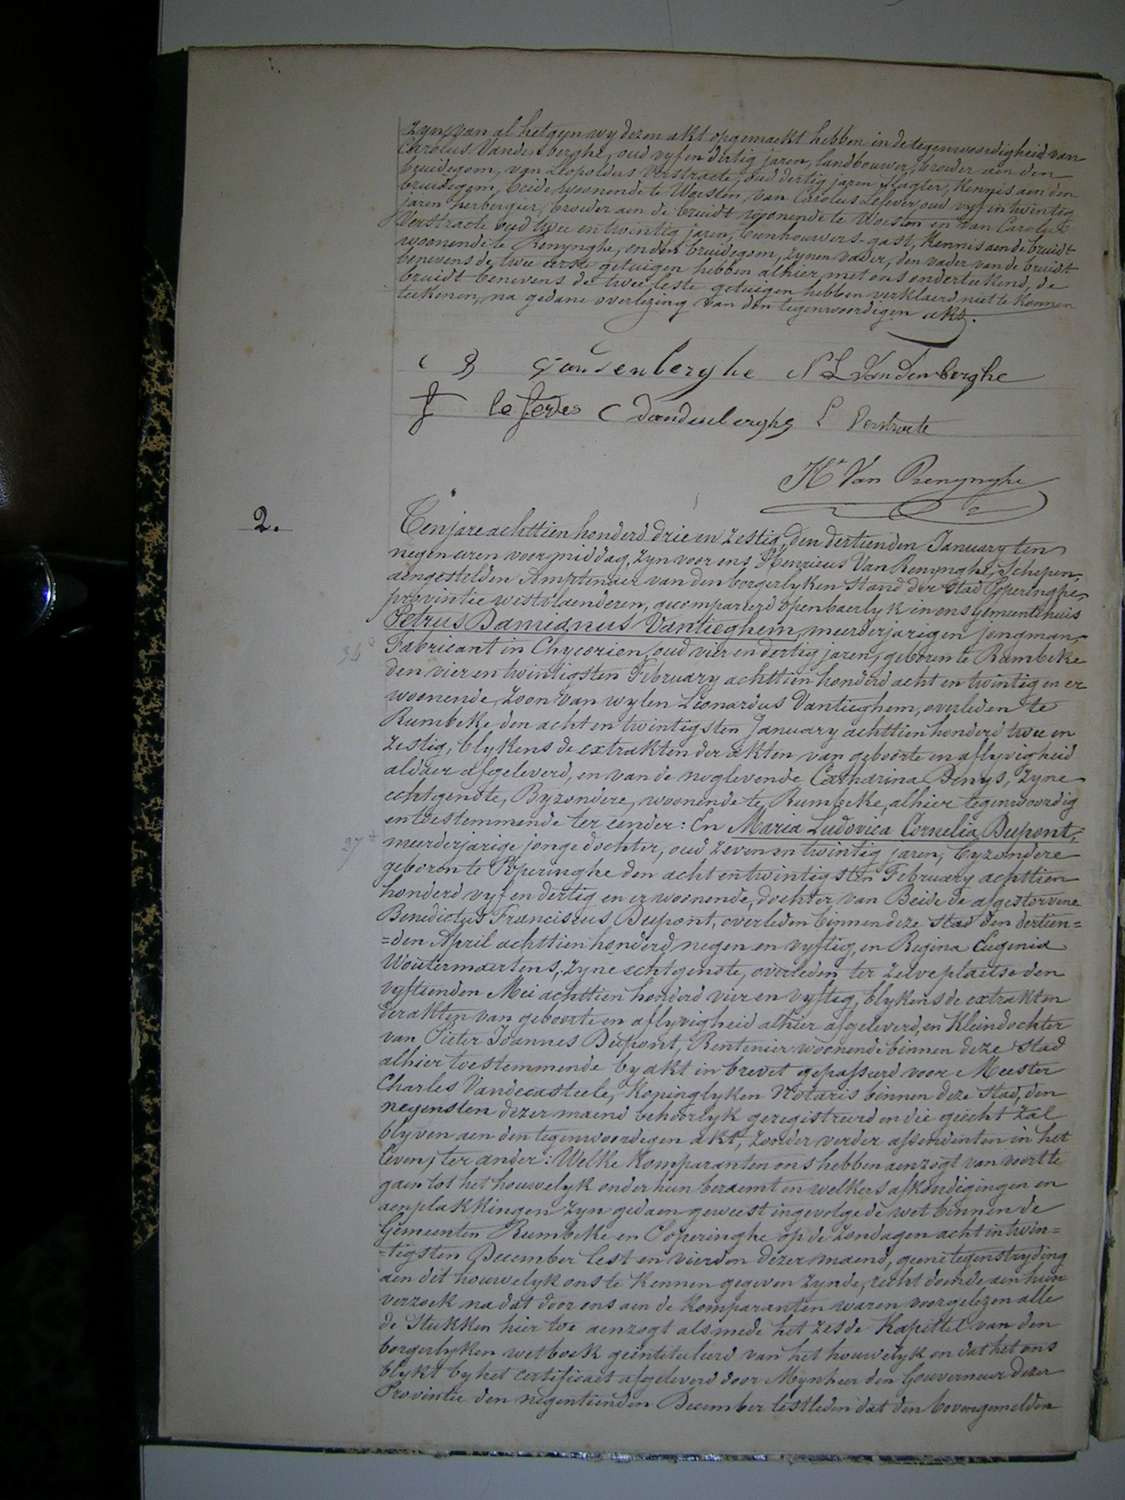 zyn, van al hetgyn wy dezen akt opgemaekt hebben in de tegenwoordigheid van
Carolus Vandenberghe, oud vyf en dertig jaren, landbouwer, broeder aen den
bruidegom, van Leopoldus Verstraete, oud dertig jaren, slagter, kennis aen den
bruidegom, beide woonende te Woesten, van Carolus Lefever oud vyf en twintig
jaren herbergier, broeder aen de bruidt woonende te Woesten en van Carolus
Verstraete oud twee en twintig jaren, beenhouwers-gast, kennis aen de bruidt
woonende te Renynghe, en den bruidegom, zynen vader, den vader van de bruidt
benevens de twee eerste getuigen hebben alhier met ons onderteekend, de
bruidt benevens de twee leste getuigen hebben verklaerd niet te konnen
teekenen, na gedane overlezing van den tegenwoordigen akt.
Vandenberghe L Vandenberghe
lefever C vandenberghe L Verstraete
Hri Van Renynghe
2.
Ten jare achttien honderd drie en zestig, den dertienden January ten
negen uren voormiddag, zyn voor ons Henricus Van Renynghe, Schepen,
aengestelden Amptenaer van den borgerlyken stand der stad Poperinghe,
provintie westvlaenderen, gecompareerd openbaerlyk in ons gemeentehuis
Petrus Damianus Vantieghem, meerderjarigen jongman,
Fabricant in Chycorien, oud vier en dertig jaren, geboren te Rumbeke
den vier en twintigsten February achttien honderd acht en twintig en er
woonende, zoon van wylen Leonardus Vantieghem, overleden te
Rumbeke, den acht en twintigsten January achttien honderd twee en
zestig, blykens de extrakten der akten, van geboorte en aflyvigheid
aldaer afgeleverd, en van de noglevende Catharina Denys, zyne
echtgenote, Byzondere, woonende te Rumbeke, alhier tegenwoordig
en toestemmende ter eender: En Maria Ludovica Cornelia Dupont,
meerderjarige jonge dochter, oud zeven en twintig jaren, byzondere
geboren te Poperinghe den acht en twintigsten February achttien
honderd vyf en dertig en er woonende, dochter van Beide de afgestorvene
Benedictus Franciscus Dupont, overleden binnen deze stad den dertien=
=den April achttien honderd negen en vyftig, en Regina Eugenia
Woutermaertens, zyne echtgenote, overleden ter zelve plaetse den
vyftienden Mei achttien honderd vier en vyftig, blykens de extrakten
der akten van geboorte en aflyvigheid alhier afgeleverd, en Kleindochter
van Pieter Joannes Dupont, Rentenier woonende binnen deze stad
alhier toestemmende by akt in brevet gepasseerd voor Meester
Charles Vandecasteele, Koninglyken Notaris binnen deze stad, den
negensten dezer maend behoorlyk geregistreerd en die gehecht zal
blyven aen den tegenwoordigen akt, zonder verder assendenten in het
leven, ter ander: Welke Komparanten ons hebben aenzogt van voort te
gaen tot het houwelyk onder hun beraemt en welkers afkondigingen en
aenplakkingen zyn gedaen geweest ingevolge de wet binnen de
Gemeenten Rumbeke en Poperinghe op de zondagen acht en twin=
=tigsten December lest en vierden dezer maend, geene tegenstryding
aen dit houwelyk ons te kennen gegeven zynde, recht doende aen hun
verzoek na dat door ons aen de komparanten waren voorgelezen alle
de stukken hier toe aenzogt alsmede het zesde Kapittel van den
borgerlyken wetboek geintituleerd van het houwelyk en dat het ons
blykt by het certificaet afgeleverd door Mynheer den Gouverneur dezer
Provintie den negentienden December lestleden dat den bovengemelden